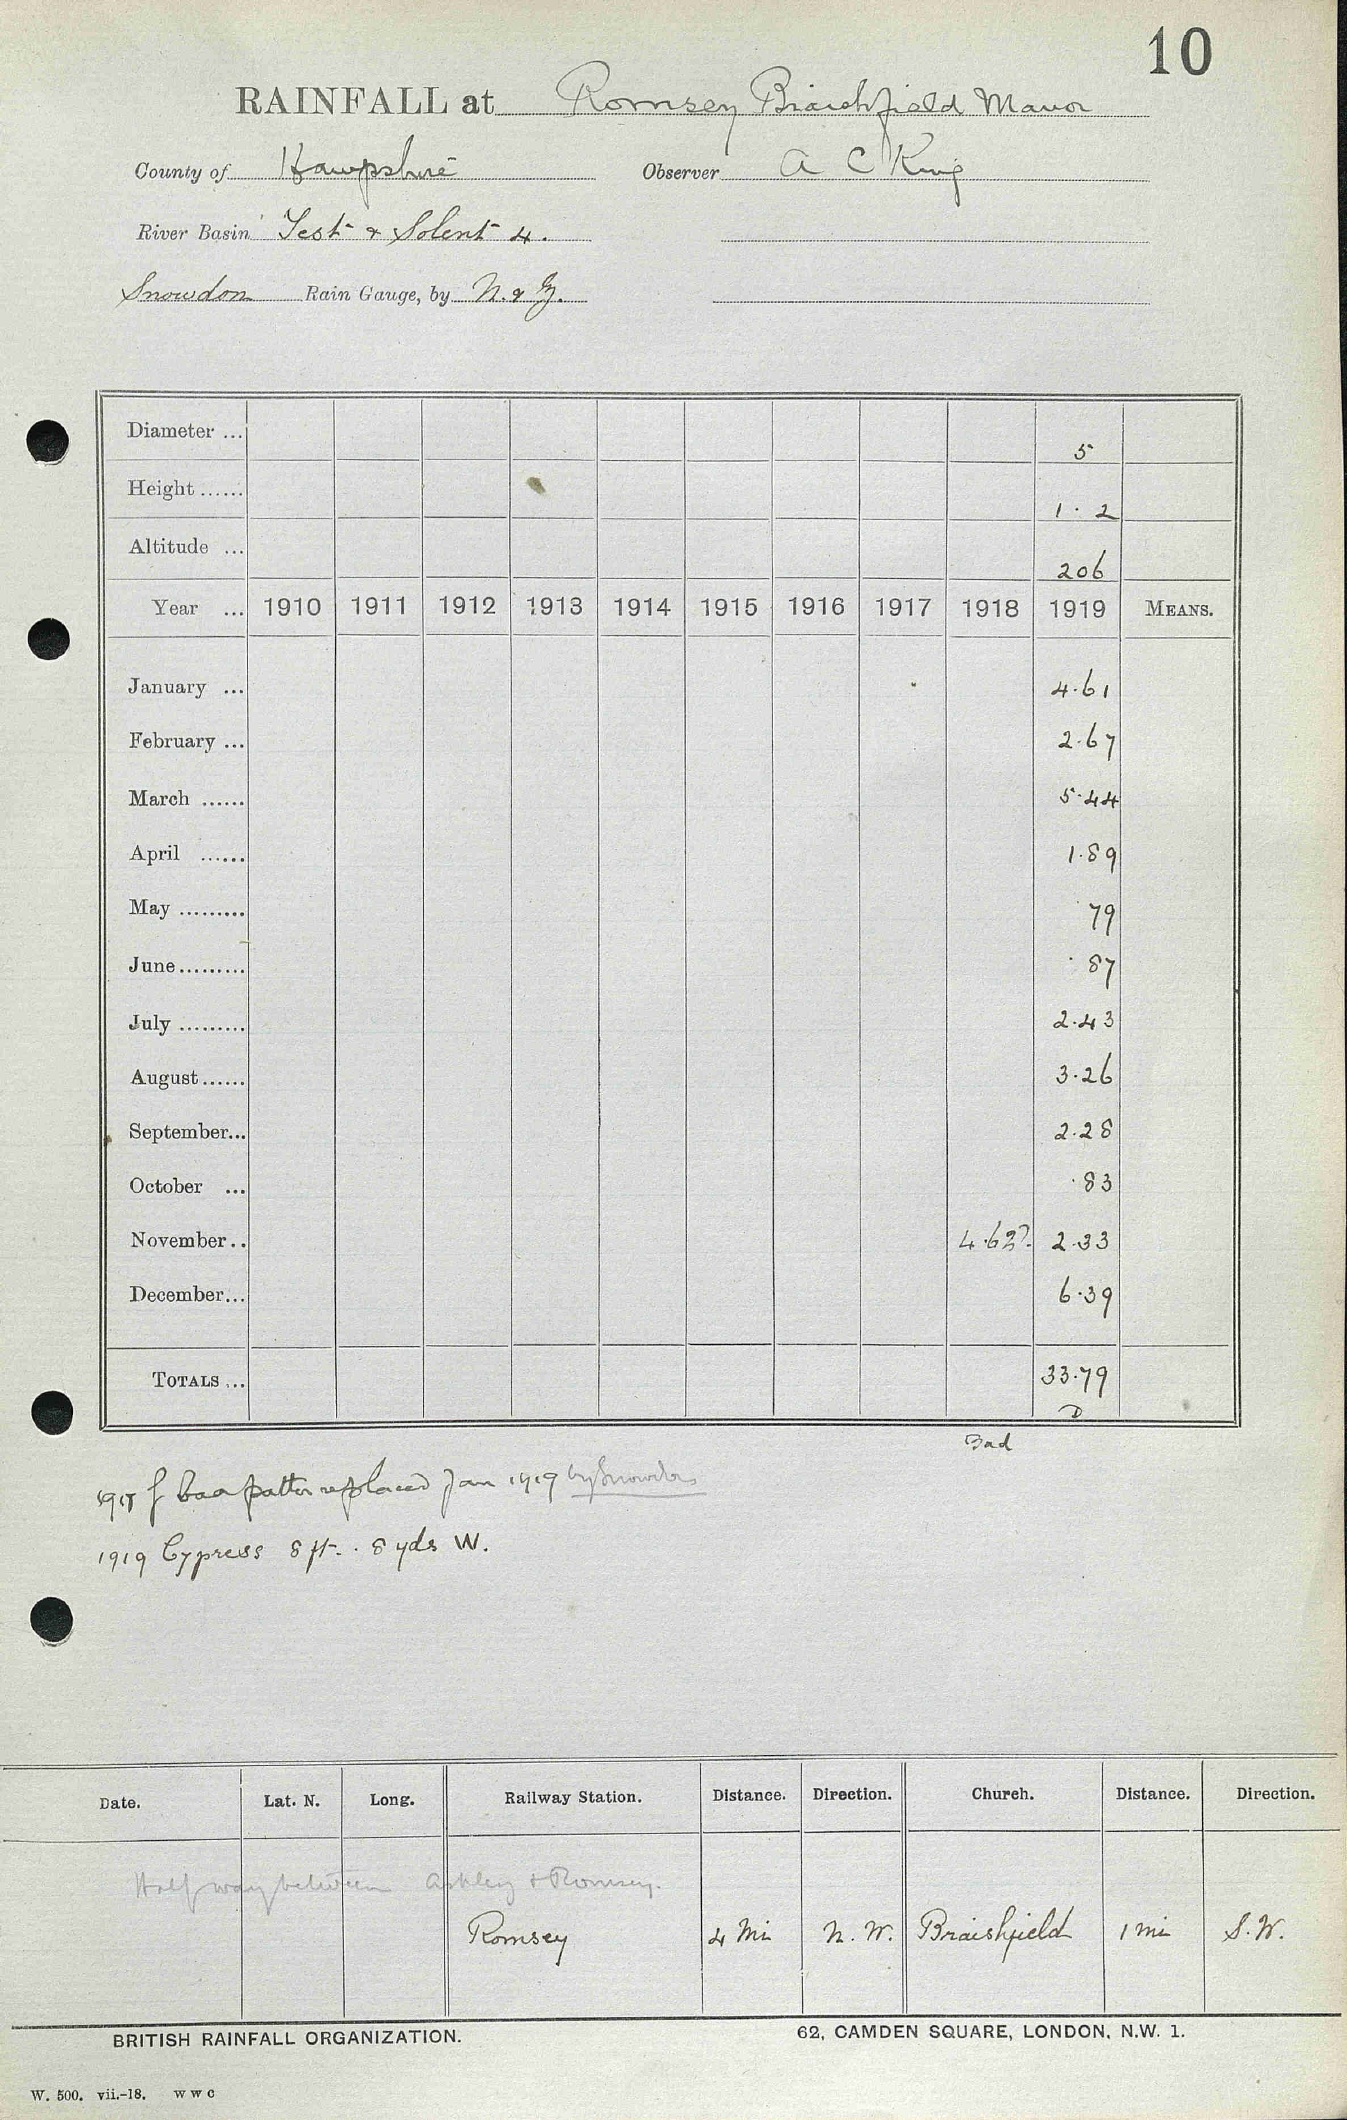 10
RAINFALL at Romsey Braishfield Manor
County of Hampshire Observer A C King
River Basin Test & Solent 4.
Snowdon Rain Gauge, by N. & Z.
Diameter ... 5
Height ...... 1 . 2
Altitude ... 206
Year ... 1910 1911 1912 1913 1914 1915 1916 1917 1918 1919 MEANS.
January ... 4.61
February ... 2.67
March ...... 5.44
April ...... 1.89
May ......... .79
June ......... .87
July ......... 2.43
August ...... 3.26
September... 2.28
October ... .83
November .. 4.62?. 2.33
December... 6.39
TOTALS ... 33.79
D
Bad
1918 f bad pattern replaced Jan 1919 by Snowdon
1919 Cypress 8 ft. . 8 yds W.
Date. Lat. N. Long. Railway Station. Distance. Direction. Church. Distance. Direction.
Half way between Ashley & Romsey.
Romsey 4 Mi N. W. Braishfield 1 mi S. W.
BRITISH RAINFALL ORGANIZATION. 62, CAMDEN SQUARE, LONDON, N.W. 1.
W. 500. vii.-18. W W C